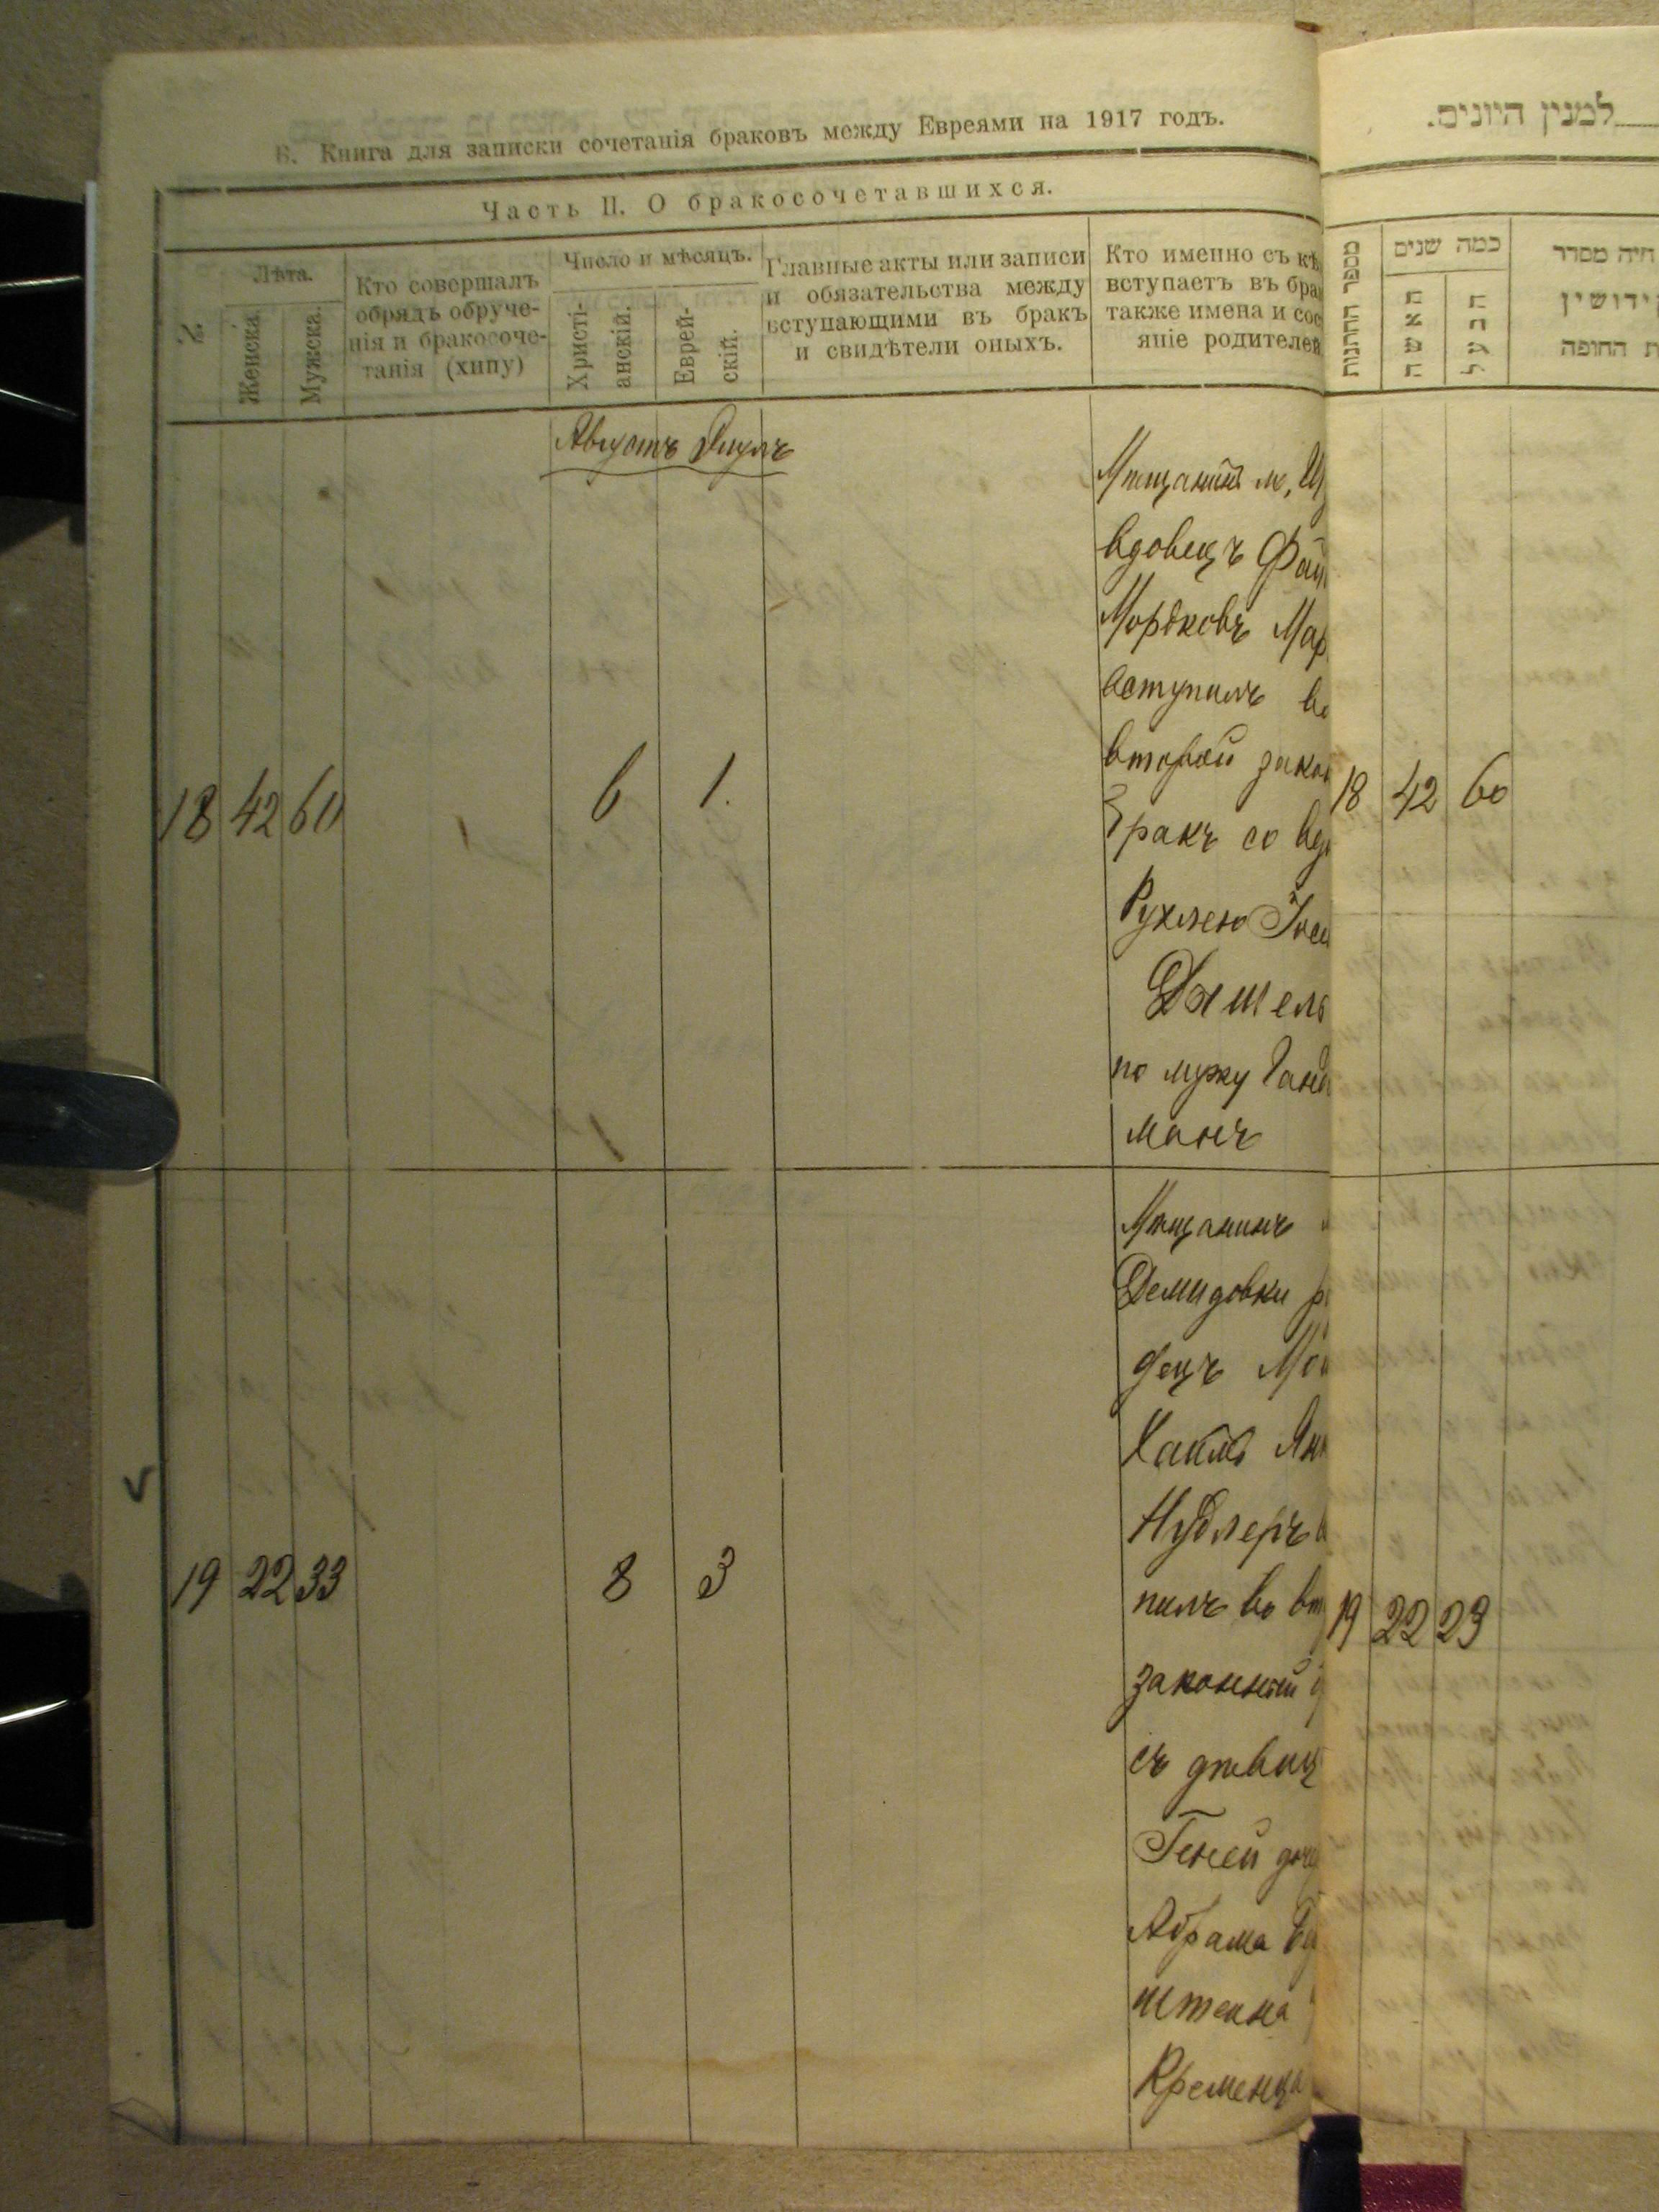 В. Книга для записки сочетанія браковъ между Евреями на 1917 годъ.
Часть II. О бракосочетавшихся.
№.
Лѣта.
Женска.
Мужска.
Кто совершалъ
обрядъ обруче-
нія и бракосоче-
танія (хипу)
Число и мѣсяцъ.
Христі-
анскій.
Еврей-
скій.
Главные акты или записи
и обязательства между
вступающими въ бракъ
и свидѣтели оныхъ.
Кто именно съ кѣ
вступаетъ въ бра
также имена и сос
яніе родителей
Августъ Элулъ
18 42 60 6 1.
Мѣщанинъ м.
вдовецъ Фай
Мордковъ Мар
вступилъ во
второй закон
бракъ со вдо
Рухлею Іос
Дишель
по мужу Ганд
манъ
19 22 33 8 3
Мѣщанинъ
Демидовки ра
децъ Мо
Хаимъ Ян
Нудлеръ
пилъ во вт
законный
съ дѣвиц
Геней доч
Абрама
штейна
Кременца
למנין היונים.
מספר החתנות
כמה שנים
האשה
הבעל
היה מסדר
קידושין
ת החופה
18 42 60
19 22 23